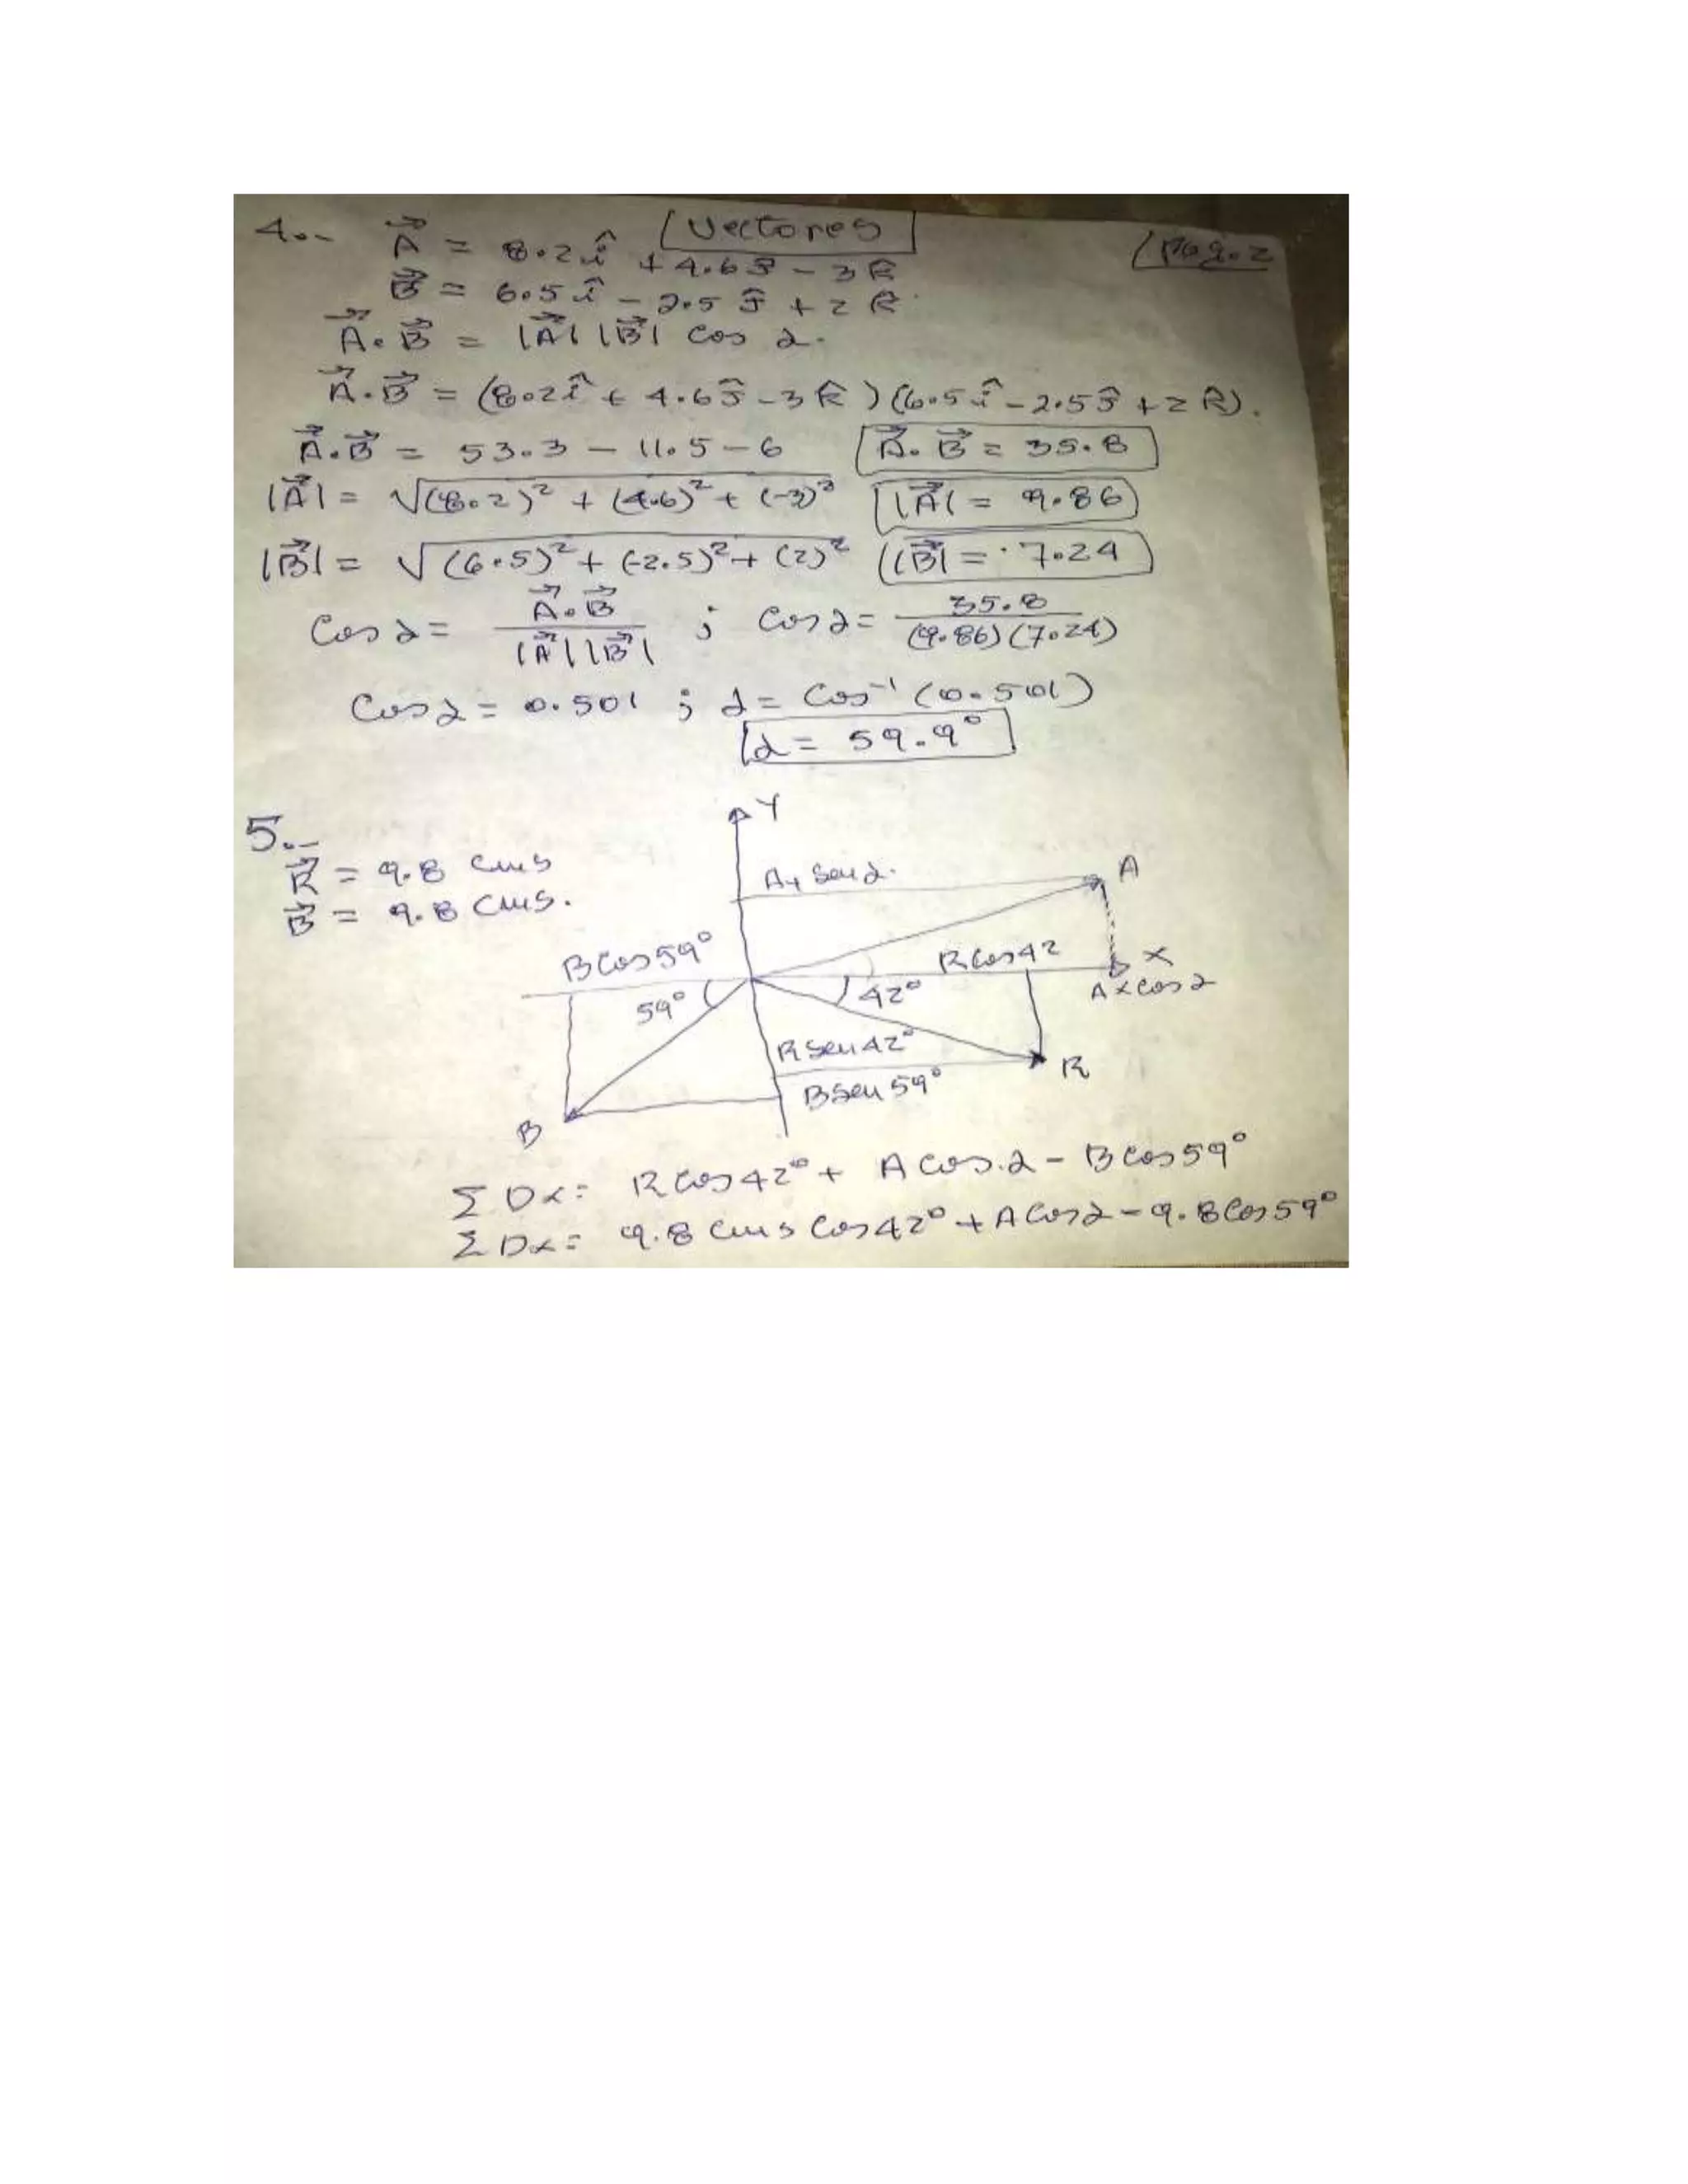 Vectores
Pág. 2
4.- A⃗ = 8.2 î + 4.6 ĵ - 3 k̂
B⃗ = 6.5 î - 2.5 ĵ + 2 k̂.
A⃗ . B⃗ = |A⃗| |B⃗| Cos α.
A⃗ . B⃗ = (8.2 î + 4.6 ĵ - 3 k̂) (6.5 î - 2.5 ĵ + 2 k̂).
A⃗ . B⃗ = 53.3 - 11.5 - 6 A⃗ . B⃗ = 35.8
|A⃗| = √(8.2)² + (4.6)² + (-3)² |A⃗| = 9.86
|B⃗| = √(6.5)² + (-2.5)² + (2)² |B⃗| = 7.24
Cos α = A⃗ . B⃗ / |A⃗| |B⃗| ; Cos α = 35.8 / (9.86) (7.24)
Cos α = 0.501 ; α = Cos⁻¹ (0.501)
α = 59.9°
5.-
R⃗ = 9.8 cms
B⃗ = 9.8 cms.
Y
Ay Sen α.
A
B Cos 59°
R Cos 42
X
59°
42°
Ax Cos α
R Sen 42°
R
B Sen 59°
B
Σ Dx = R Cos 42° + A Cos. α - B Cos 59°
Σ Dx = 9.8 cms Cos 42° + A Cos α - 9.8 Cos 59°